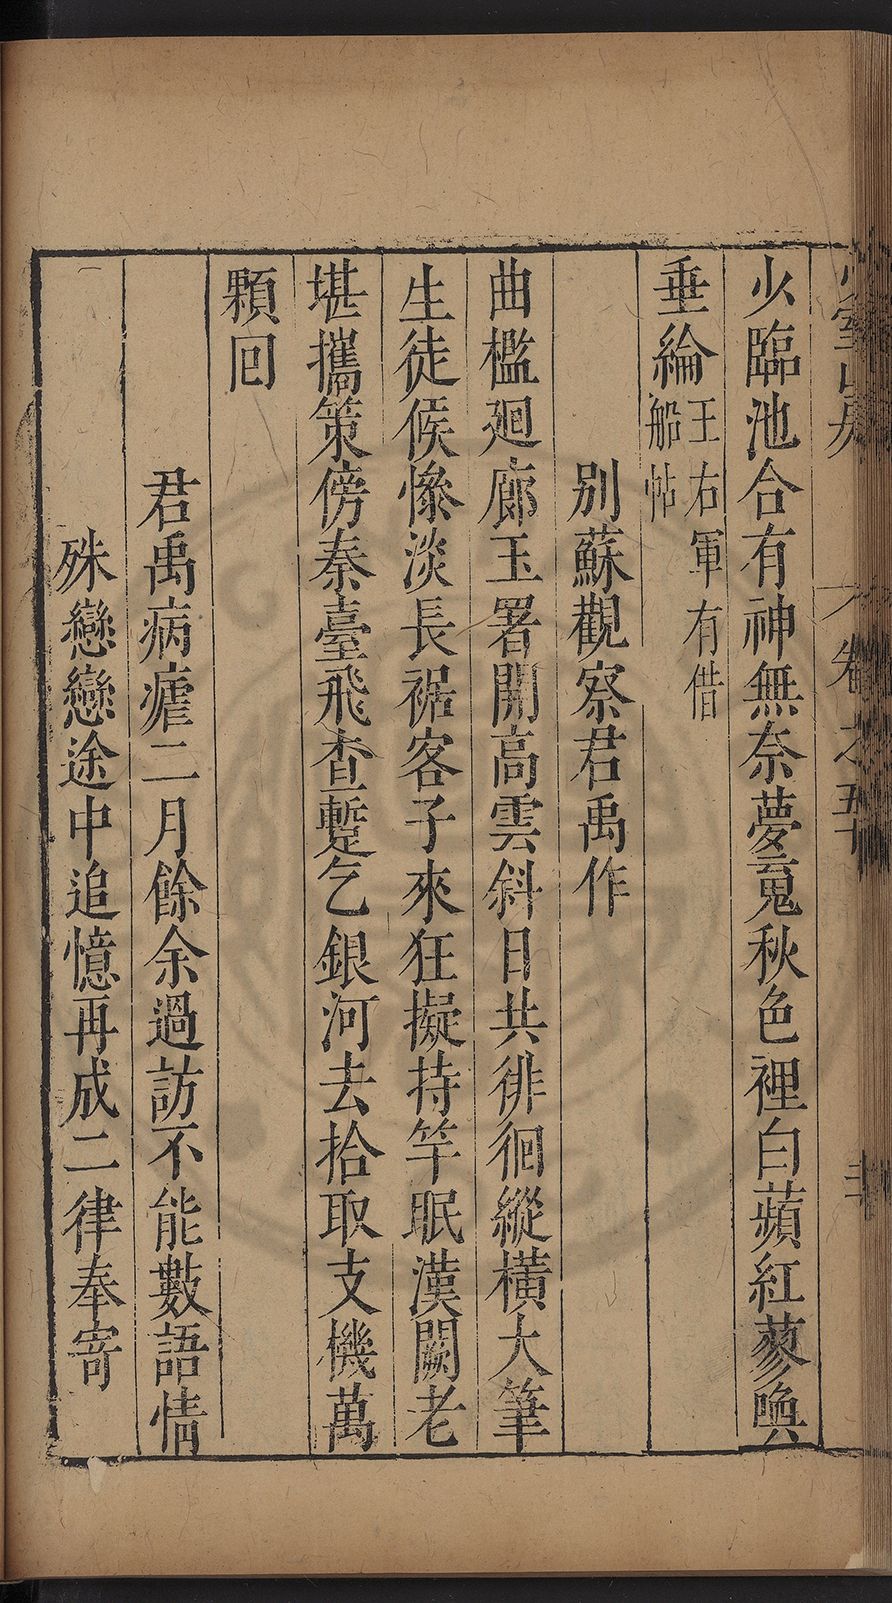 少臨池合有神無奈夢䰟秋色裡白蘋紅蓼喚
垂綸王右軍有借船帖
別蘇觀察君禹作
曲檻廻廊玉署開高雲斜日共徘徊縱橫大筆
生徒候慘淡長裾客子來狂擬持竿眠漢闕老
堪攜策傍秦臺飛查蹔乞銀河去拾取支機萬
顆回
君禹病瘧二月餘余過訪不能數語情
殊戀戀途中追憶再成二律奉寄
卷之五